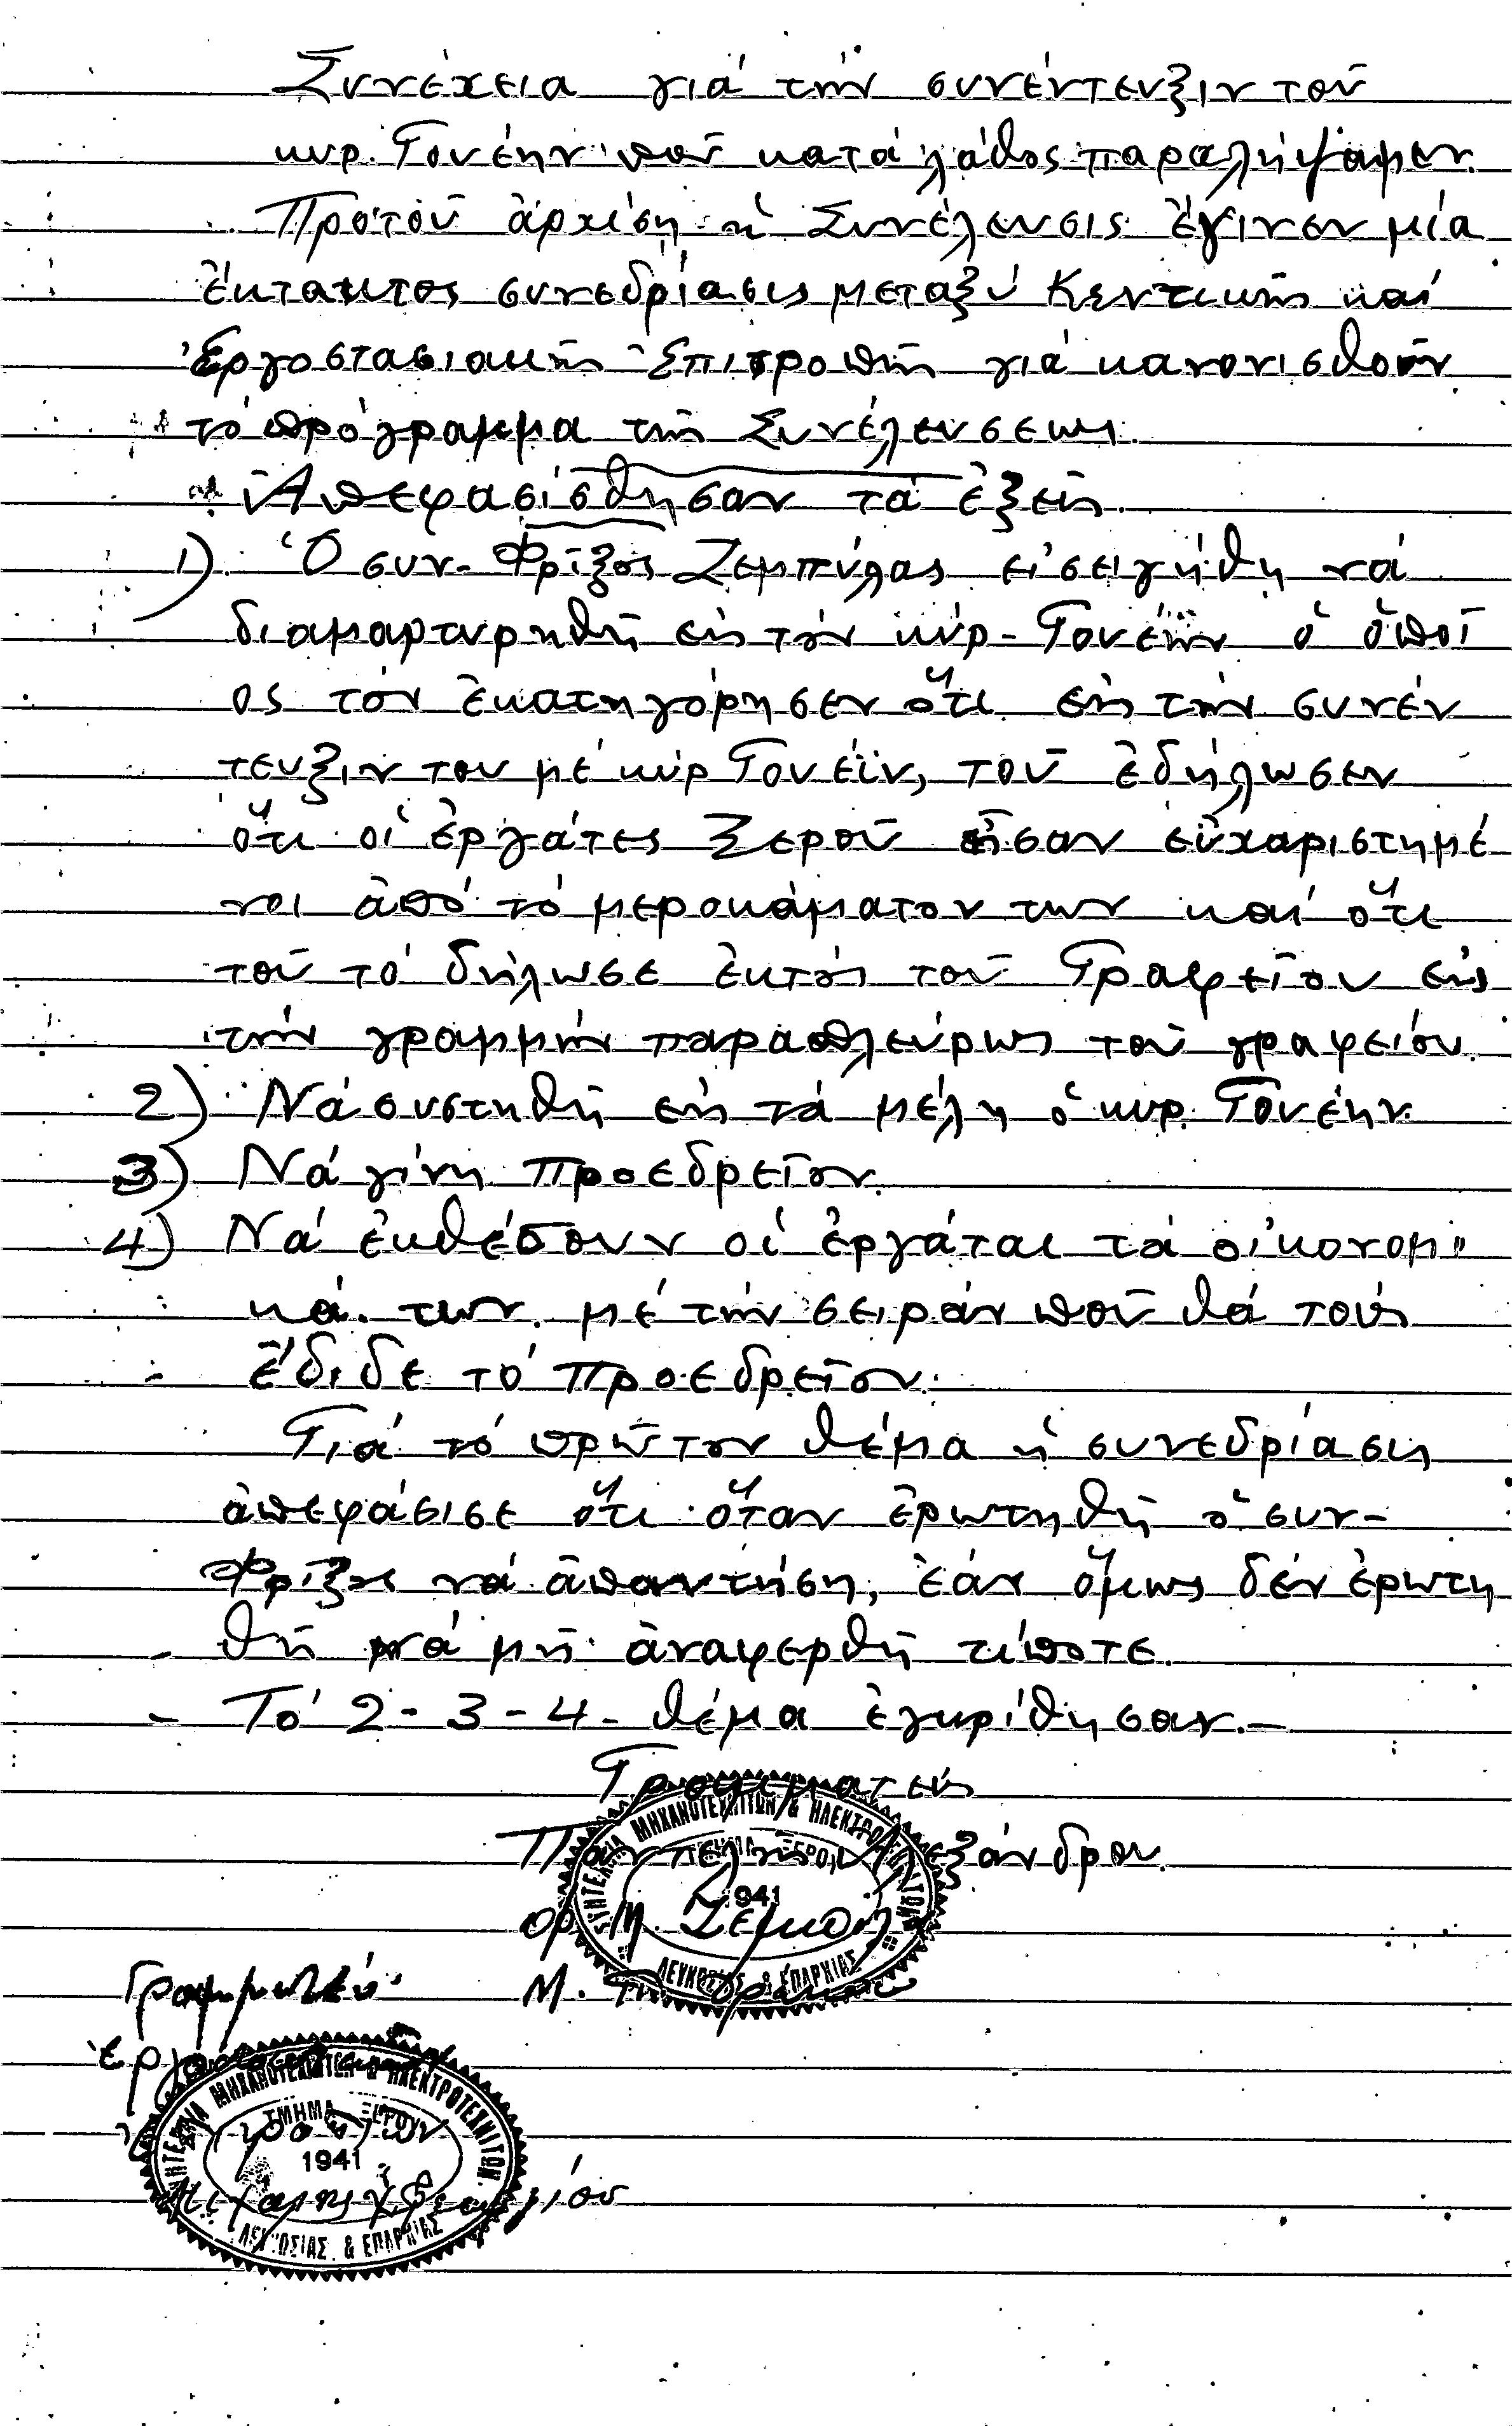 Συνέχεια γιά τήν συνέντευξιν τοῦ
κυρ. Γονέην ποῦ κατά λάθος παραλήψαμεν.
Προτοῦ ἀρχίση ἡ Συνέλευσις ἔγινεν μία
ἔκτακτος συνεδρίασις μεταξύ Κεντικῆς καί
Ἐργοστασιακῆς Ἐπιτροπῆς γιά κανονισθοῦν
τό πρόγραμμα τῆς Συνέλευσεως.
Ἀπεφασίσθησαν τά ἑξεῖς.
1) Ὁ συν- Φρῖξος Ζεμπύλας εἰσειγήθη νά
διαμαρτυρηθῆ εἰς τόν κύρ- Γονέην ὁ ὁποῖ
ος τόν ἐκατηγόρησεν ὅτι εἰς τήν συνέν
τευξιν του μέ κύρ Γονέϊν, τοῦ ἐδήλωσεν
ὅτι οἱ ἐργάτες Ξεροῦ ἦσαν εὐχαριστημέ
νοι ἀπό τό μεροκάματον των καί ὅτι
τοῦ τό δήλωσε ἐκτός τοῦ Γραφεῖου εἰς
τήν γραμμήν παραπλεύρως τοῦ γραφείου.
2) Νά συστηθῆ εἰς τά μέλη ὁ κυρ. Γονέην.
3) Νά γίνη προεδρεῖον.
4) Νά ἐκθέσουν οἱ ἐργάται τά οἰκονομι
κά. των. μέ τήν σειράν ποῦ θά τούς
ἔδιδε τό προεδρεῖον.
Γιά τό πρῶτον θέμα ἡ συνεδρίασις
ἀπεφάσισε ὅτι ὅταν ἐρωτηθῆ ὁ συν-
Φρῖξος νά ἀπαντήση, ἐάν ὅμως δέν ἐρωτη
θῆ νά μή ἀναφερθῆ τίποτε.
- Τό 2 - 3 - 4 - θέμα ἐγκρίθησαν.-
Γραμματεύς
Παντελῆς Ἀλεξάνδρου
ΣΥΝΤΕΧΝΙΑ ΜΗΧΑΝΟΤΕΧΝΙΤΩΝ & ΗΛΕΚΤΡΟΤΕΧΝΙΤΩΝ
ΤΜΗΜΑ ΞΕΡΟΥ
1941
ΛΕΥΚΩΣΙΑΣ & ΕΠΑΡΧΙΑΣ
Γραμματεύς
ΣΥΝΤΕΧΝΙΑ ΜΗΧΑΝΟΤΕΧΝΙΤΩΝ & ΗΛΕΚΤΡΟΤΕΧΝΙΤΩΝ
ΤΜΗΜΑ ΞΕΡΟΥ
1941
ΛΕΥΚΩΣΙΑΣ & ΕΠΑΡΧΙΑΣ